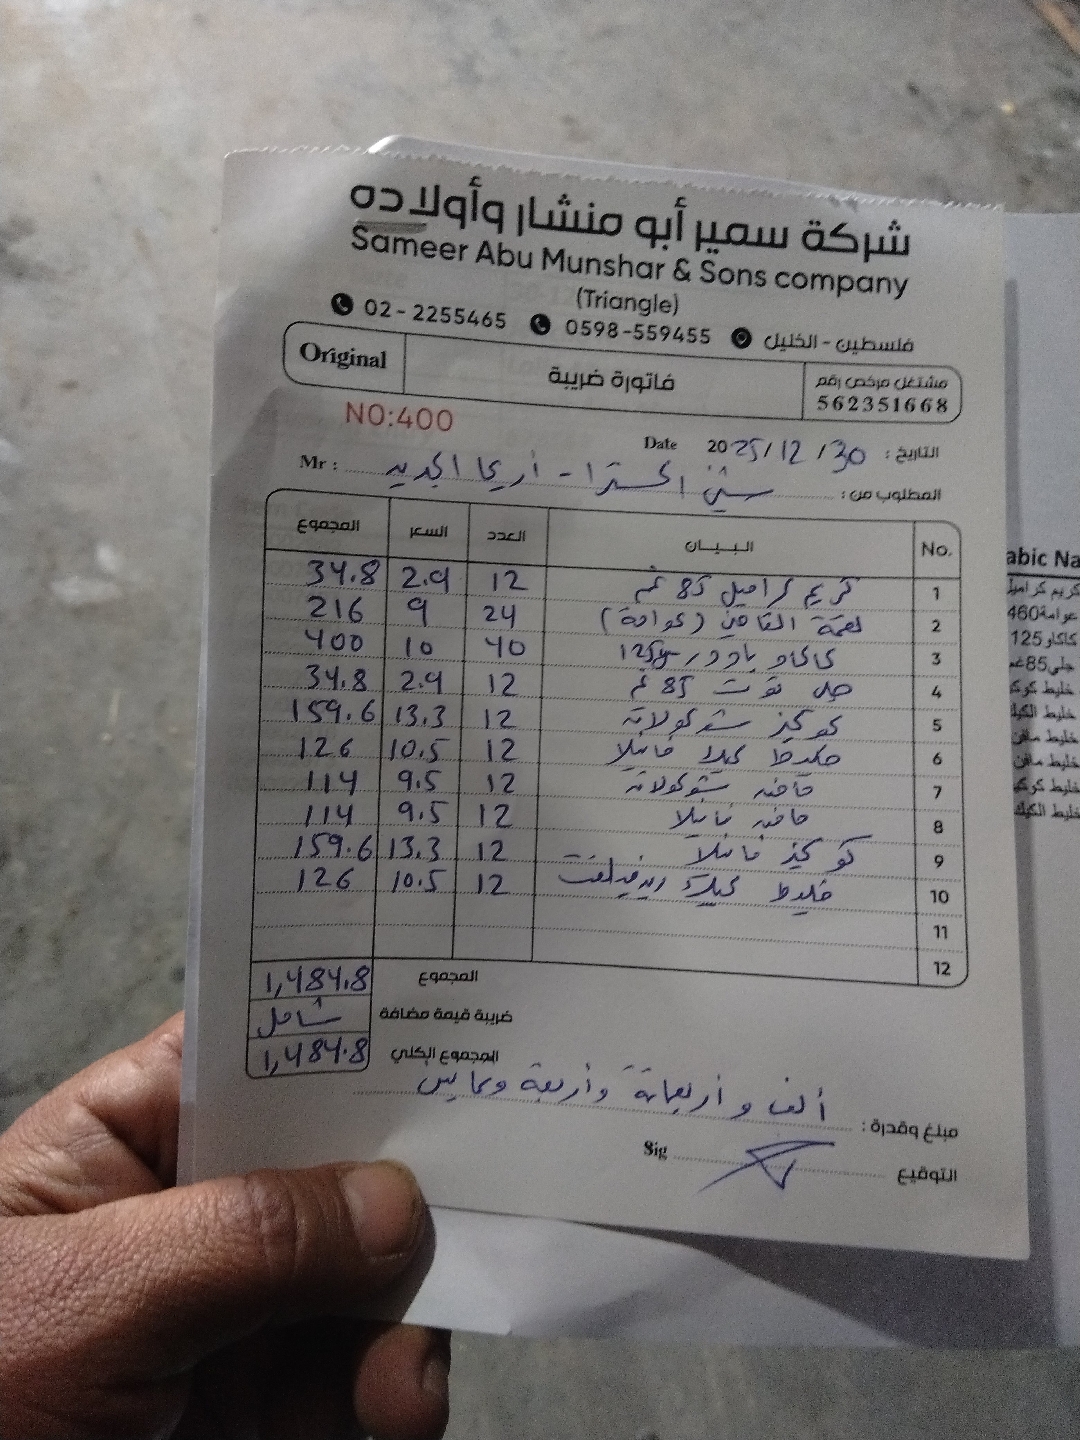 شركة سمير أبو منشار وأولاده
Sameer Abu Munshar & Sons company
(Triangle)
02 - 2255465 0598 -559455 فلسطين - الخليل
Original فاتورة ضريبة مشتغل مرخص رقم 562351668
NO:400
Date 2025/12/30 التاريخ :
Mr : سيتي اكسترا - أريحا الجديد المطلوب من :
No. البيـــان العدد السعر المجموع
1 كريم كراميل 85 غم 12 2.9 34.8
2 لقمة القاضي (عوامة) 24 9 216
3 كاكاو باودر 125g 40 10 400
4 جلي توت 85 غم 12 2.9 34.8
5 كوكيز شوكولاته 12 13.3 159.6
6 خليط كيك فانيلا 12 10.5 126
7 مافن شوكولاته 12 9.5 114
8 مافن فانيلا 12 9.5 114
9 كوكيز فانيلا 12 13.3 159.6
10 خليط كيك ريد فيلفت 12 10.5 126
11
12
المجموع 1,484.8
ضريبة قيمة مضافة شامل
المجموع الكلي 1,484.8
مبلغ وقدرة : ألف و أربعمائة وأربعة وثمانين
التوقيع Sig
abic Na
كريم كراميل
عوامة460
كاكاو125
جلي85غم
خليط كوكي
خليط الكيك
خليط مافن
خليط مافن
خليط كوكي
خليط الكيك